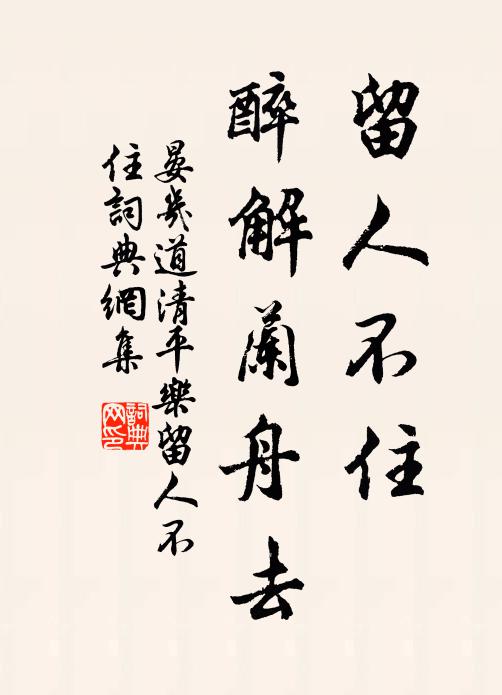 留人不住
醉解蘭舟去
晏幾道清平樂留人不
住詞典網集
詞典
网印